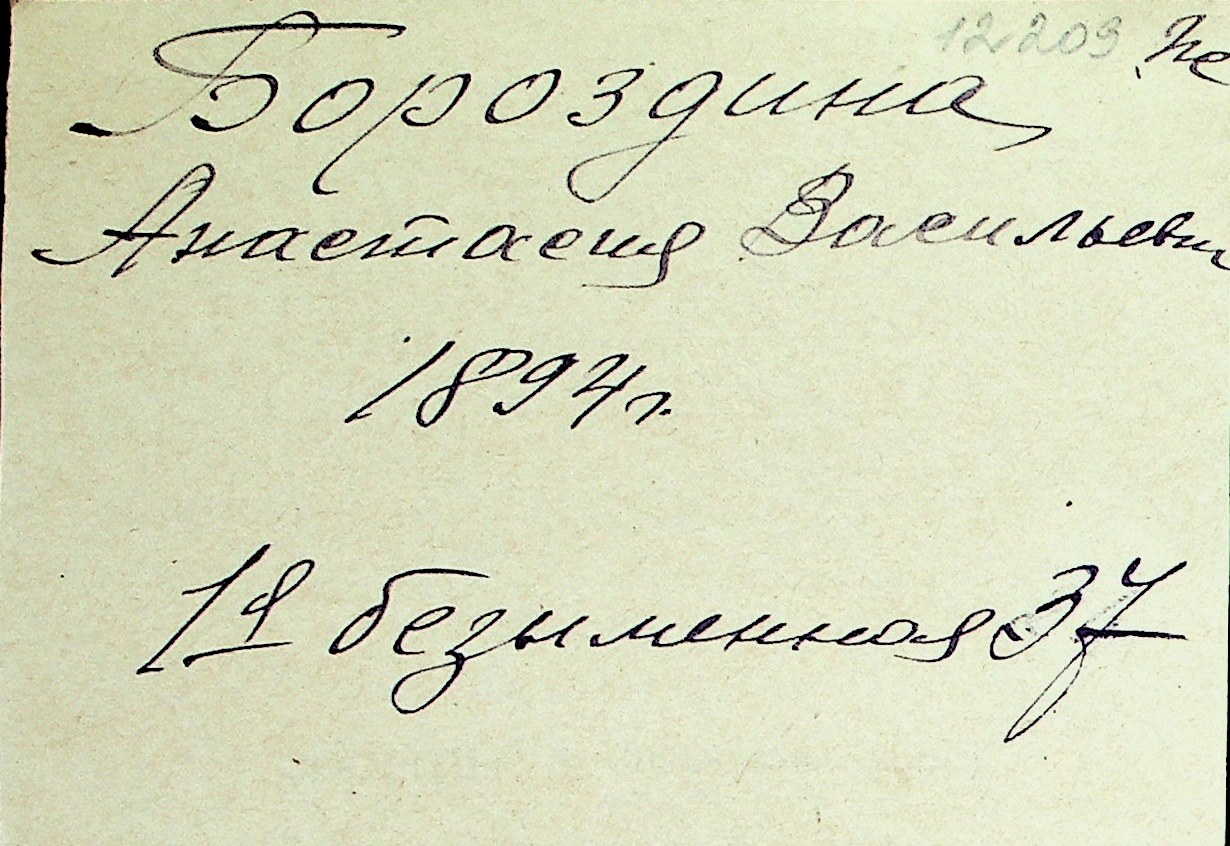 12203
Бороздина
Анастасия Васильевн
1894г.
1я безыменная 37